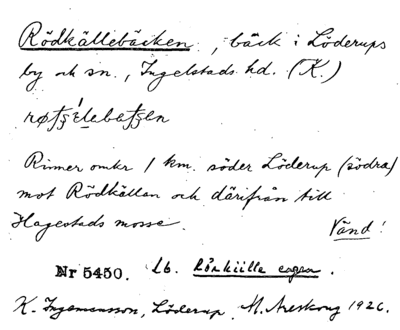 Rödkällebäcken, bäck i Löderups
by och sn., Ingelstads hd. (K.)
Rinner omkr 1 km. söder Löderup (södra)
mot Rödkällan och därifrån till
Hagestads mosse. Vänd!
Nr 5450. Lb.
K. Ingemansson, Löderup. M. Areskoug 1926.